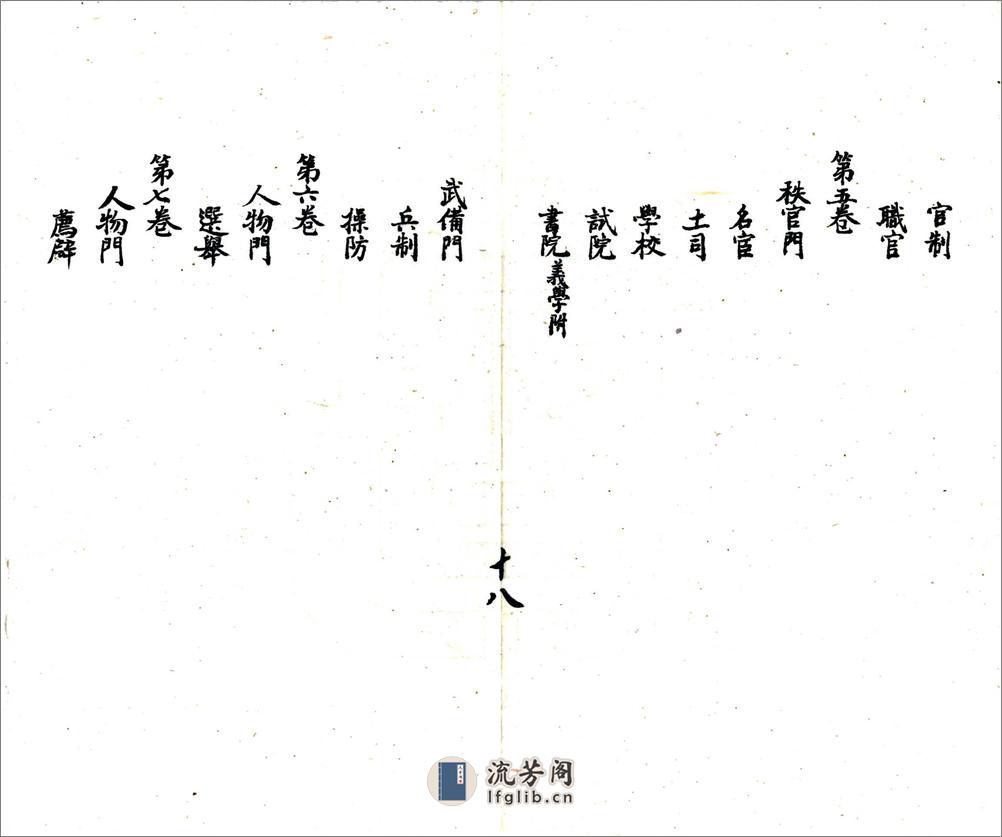 官制
職官
第五卷
秩官門
名宦
土司
學校
試院
書院義學附
十八
武備門
兵制
操防
第六卷
人物門
選舉
第七卷
人物門
薦辟
流芳阁
lfglib.cn